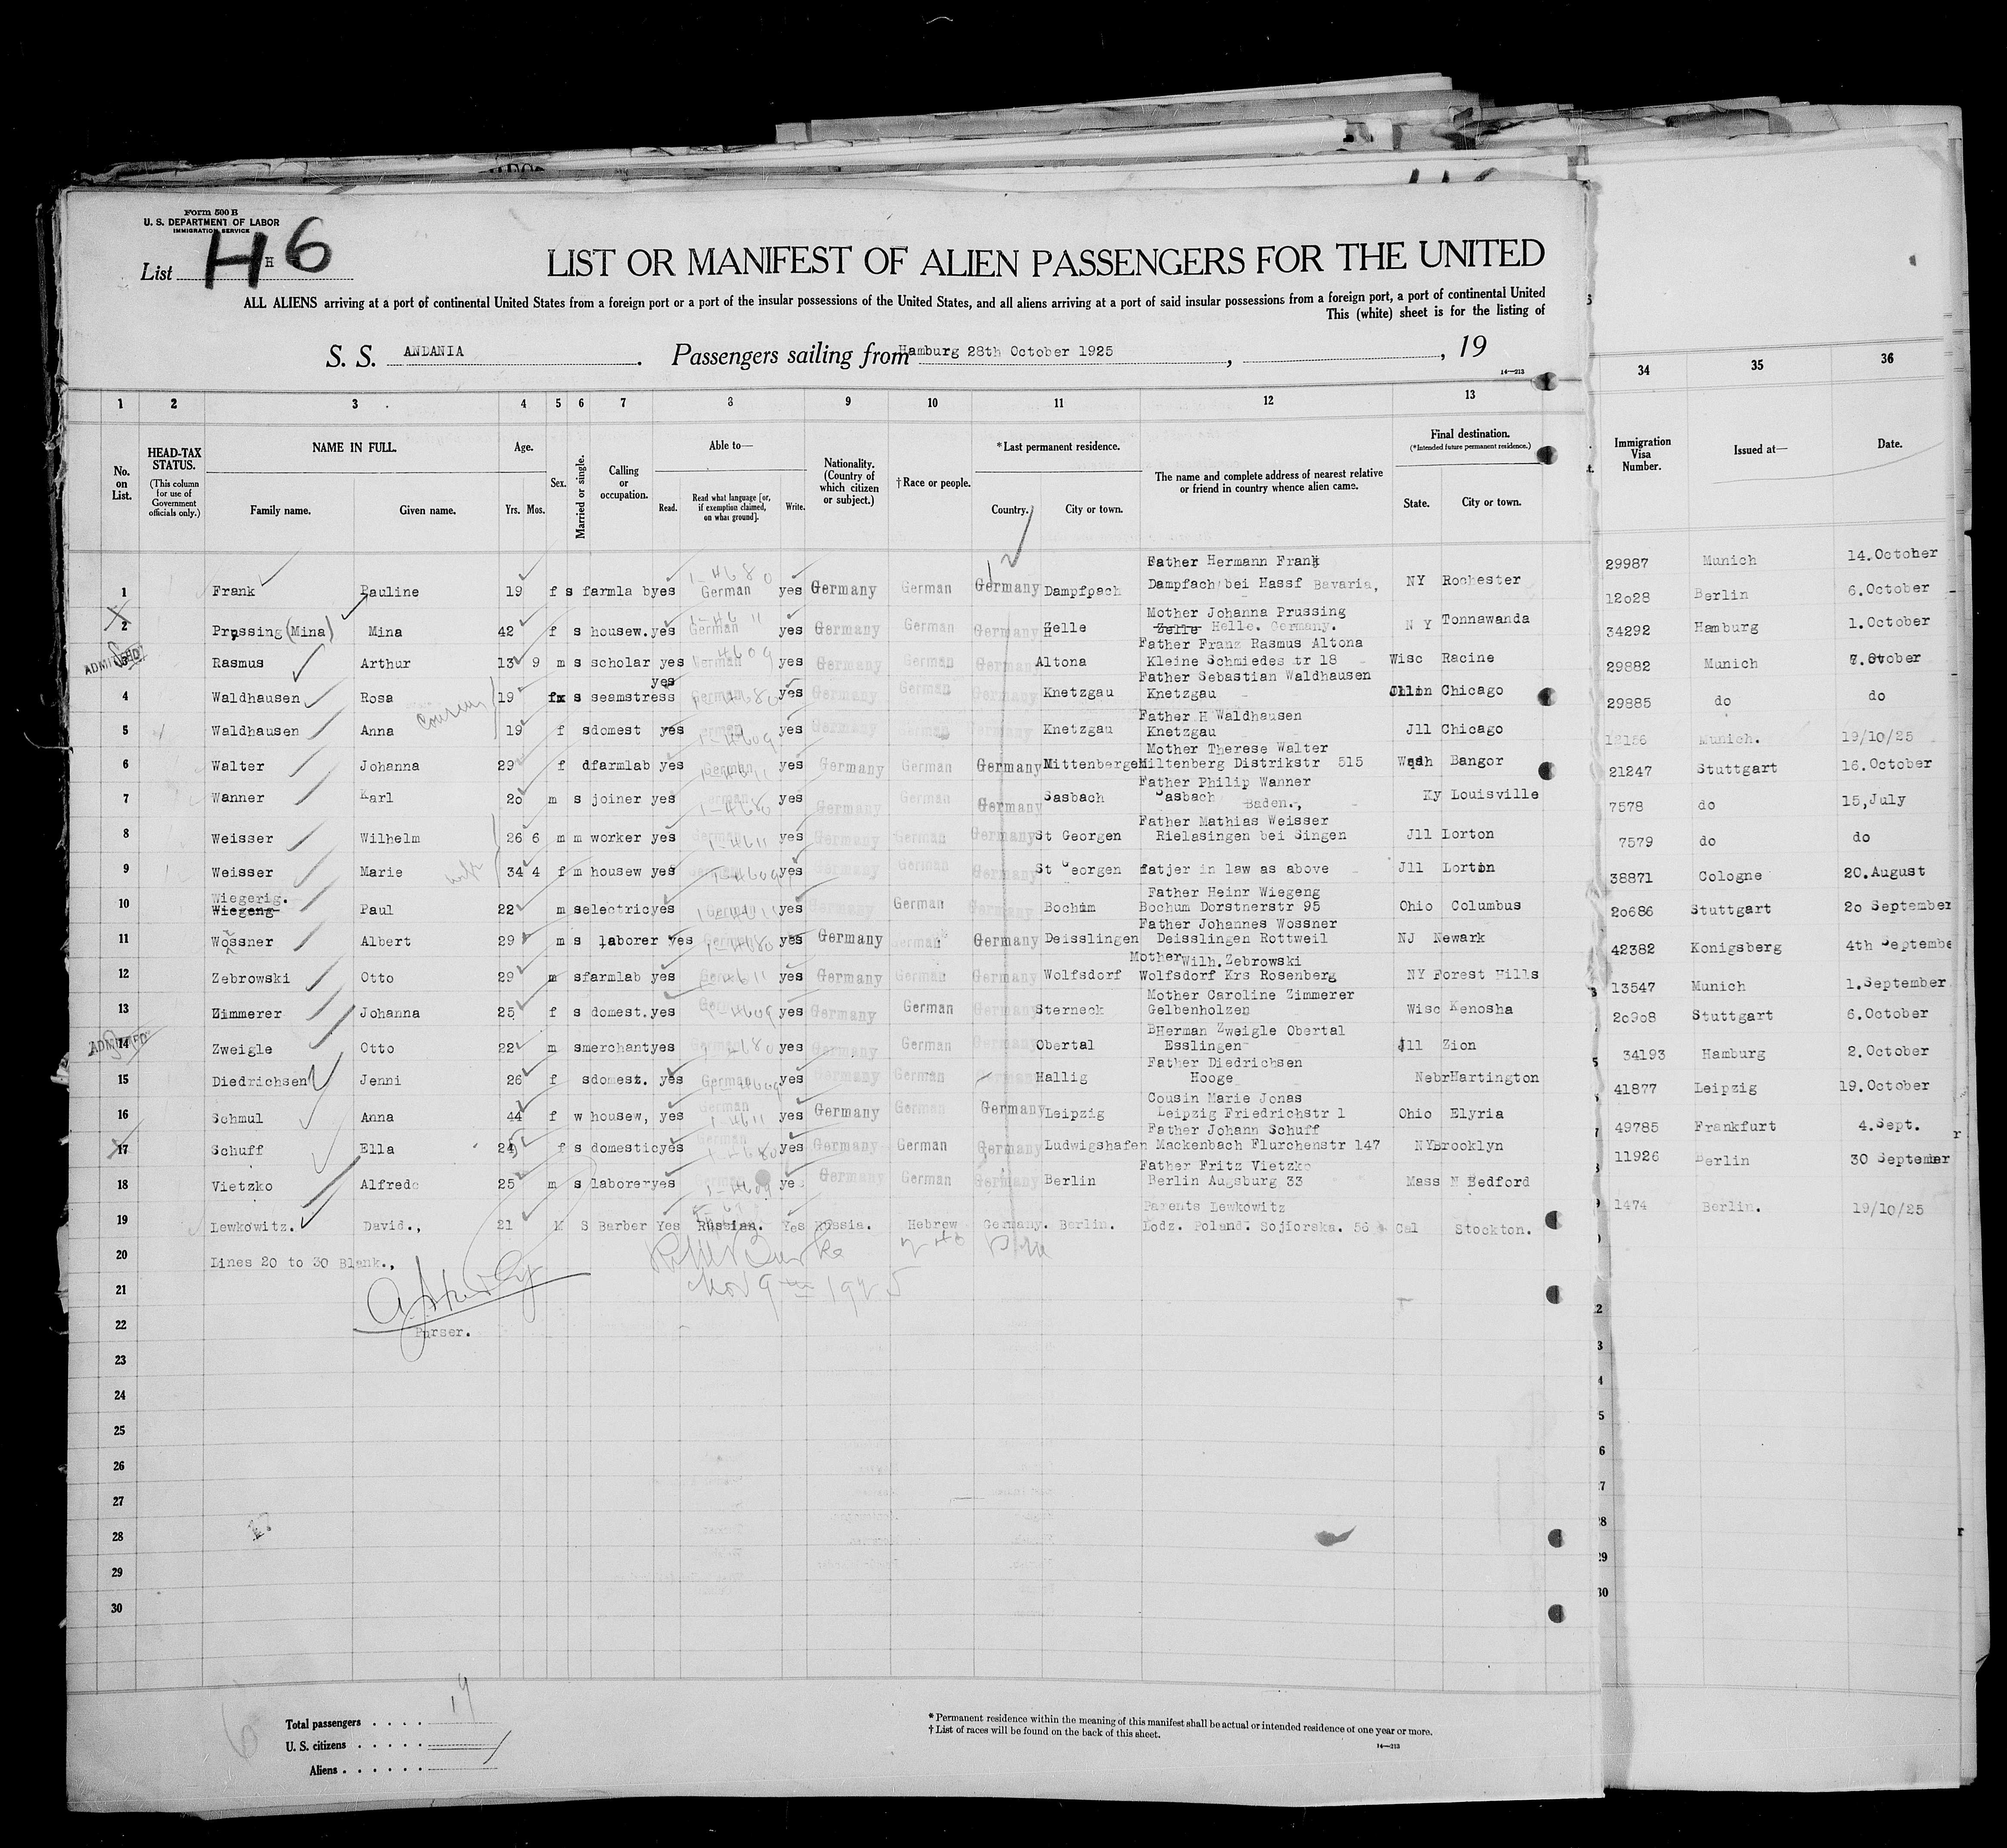 Form 500 B
U. S. DEPARTMENT OF LABOR
IMMIGRATION SERVICE
List H 6 H
LIST OR MANIFEST OF ALIEN PASSENGERS FOR THE UNITED
ALL ALIENS arriving at a port of continental United States from a foreign port or a port of the insular possessions of the United States, and all aliens arriving at a port of said insular possessions from a foreign port, a port of continental United
This (white) sheet is for the listing of
S. S. ANDANIA . Passengers sailing from Hamburg 28th October 1925 , , 19
14—213
1 2 3 4 5 6 7 8 9 10 11 12 13 34 35 36
No. on List.
HEAD-TAX STATUS.
(This column for use of Government officials only.)
NAME IN FULL.
Family name. Given name.
Age.
Yrs. Mos.
Sex.
Married or single.
Calling or occupation.
Able to—
Read. Read what language [or, if exemption claimed, on what ground]. Write.
Nationality. (Country of which citizen or subject.)
†Race or people.
*Last permanent residence.
Country. City or town.
The name and complete address of nearest relative or friend in country whence alien came.
Final destination.
(*Intended future permanent residence.)
State. City or town.
Immigration Visa Number.
Issued at—
Date.
Father Hermann Frank
1 Frank Pauline 19 f s farmla b yes 1-4680 German yes Germany German Germany Dampfpach Dampfach bei Hassf Bavaria, NY Rochester 29987 Munich 14.October
Mother Johanna Prussing
2 Prussing (Mina) Mina 42 f s housew. yes German yes Germany German Germany Helle Zelle Helle. Germany. N Y Tonnawanda 12028 Berlin 6.October
Father Franz Rasmus Altona
ADMITTED 3 Rasmus Arthur 13 9 m s scholar yes German 4609 yes Germany German Germany Altona Kleine Schmiedes tr 18 Wisc Racine 34292 Hamburg 1.October
Father Sebastian Waldhausen
4 Waldhausen Rosa 19 fx s seamstress yes German yes Germany German Germany Knetzgau Knetzgau Chicago 29882 Munich
Cousin
Father H Waldhausen
5 Waldhausen Anna 19 f s domest yes German yes Germany German Germany Knetzgau Knetzgau Jll Chicago 29885 do do
Mother Therese Walter
6 Walter Johanna 29 f d farmlab yes German yes Germany German Germany Mittenbergen Miltenberg Distrikstr 515 Wash Bangor 12186 Munich. 19/10/25
Father Philip Wanner
7 Wanner Karl 20 m s joiner yes German yes Germany German Germany Sasbach Sasbach Baden., Ky Louisville 21247 Stuttgart 16.October
Father Mathias Weisser
8 Weisser Wilhelm 26 6 m m worker yes German yes Germany German Germany St Georgen Rielasingen bei Singen Jll Lorton 7578 do 15,July
9 Weisser Marie wife 34 4 f m housew yes German yes Germany German Germany St Georgen fatjer in law as above Jll Lorton 7579 do do
Wiegerig. Father Heinr Wiegeng
10 Wiegeng Paul 22 m s electric yes German yes Germany German Germany Bochum Bochum Dorstnerstr 95 Ohio Columbus 38871 Cologne 20.August
Father Johannes Wossner
11 Wossner Albert 29 m s laborer yes German yes Germany German Germany Deisslingen Deisslingen Rottweil NJ Newark 20686 Stuttgart 20 September
Mother Wilh. Zebrowski
12 Zebrowski Otto 29 m s farmlab yes German yes Germany German Germany Wolfsdorf Wolfsdorf Krs Rosenberg NY Forest Hills 42382 Konigsberg 4th Septembe
Mother Caroline Zimmerer
13 Zimmerer Johanna 25 f s domest. yes German 4609 yes Germany German Germany Sterneck Gelbenholzen Wisc Kenosha 13547 Munich 1.September
BHerman Zweigle Obertal
ADMITTED 14 Zweigle Otto 22 m s merchant yes German yes Germany German Germany Obertal Esslingen Jll Zion 20908 Stuttgart 6.October
Father Diedrichsen
15 Diedrichsen Jenni 26 f s domest. yes German yes Germany German Hallig Hooge Nebr Hartington 34193 Hamburg 2.October
Cousin Marie Jonas
16 Schmul Anna 44 f w housew, yes German 1-4611 yes Germany German Germany Leipzig Leipzig Friedrichstr 1 Ohio Elyria 41877 Leipzig 19.October
Father Johann Schuff
17 Schuff Ella 24 f s domestic yes German 1-4680 yes Germany German Germany Ludwigshafen Mackenbach Flurchenstr 147 NY Brooklyn 49785 Frankfurt 4.Sept.
Father Fritz Vietzko
18 Vietzko Alfredo 25 m s laborer yes German 1-4609 yes Germany German Germany Berlin Berlin Augsburg 33 Mass N Bedford 11926 Berlin 30 September
Parents Lewkowitz
19 Lewkowitz. David., 21 M S Barber Yes Russian. Yes Russia. Hebrew Germany. Berlin. Lodz. Poland. Sojforska. 56 Cal Stockton. 1474 Berlin. 19/10/25
20 Lines 20 to 30 Blank.,
Nov 9th 1925
21
22 Purser.
23
24
25
26
27
28
29
30
Total passengers . . . . 19
U. S. citizens . . . . .
Aliens . . . . . .
* Permanent residence within the meaning of this manifest shall be actual or intended residence of one year or more.
† List of races will be found on the back of this sheet.
14—213